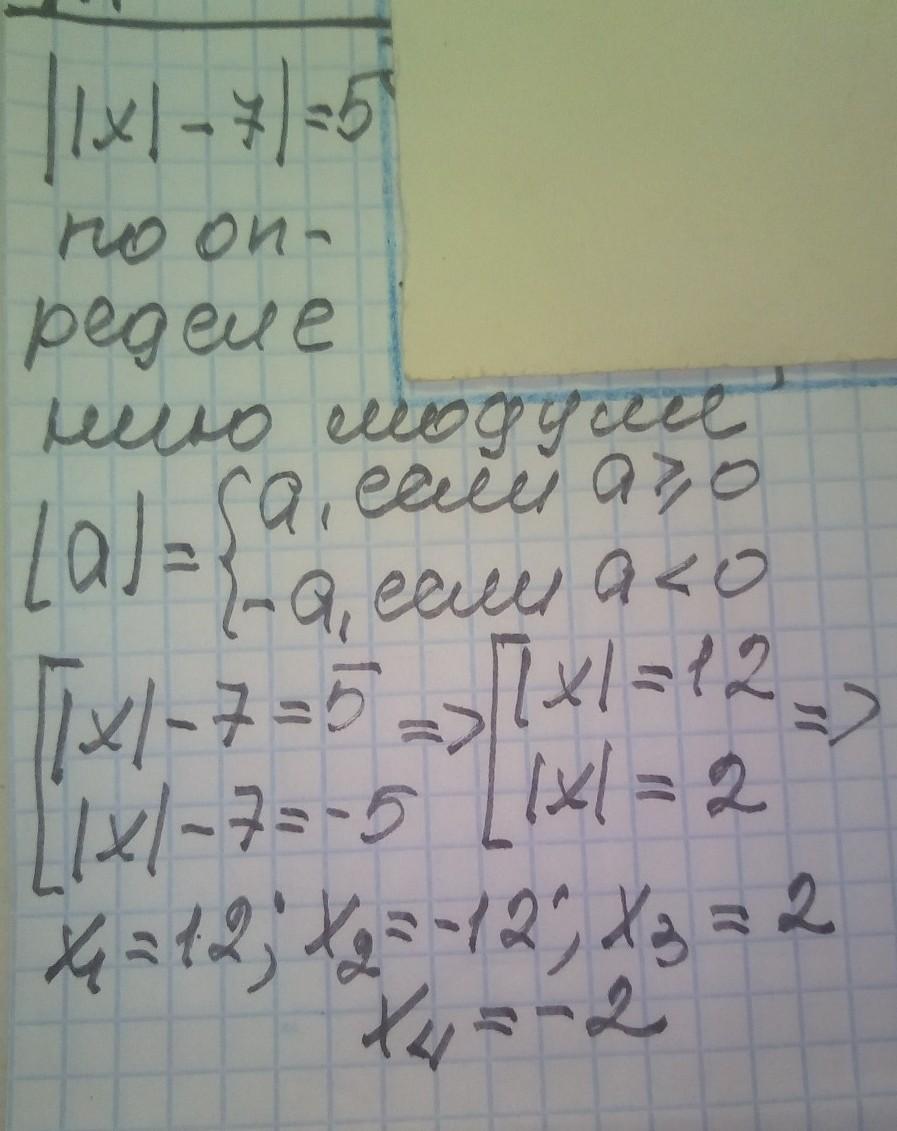 ||x| - 7| = 5
по оп-
ределе
нию модуля
|a| = { a, если a ⩾ 0
-a, если a < 0
[ |x| - 7 = 5 => [ |x| = 12 =>
|x| - 7 = -5 |x| = 2
x₁ = 12; x₂ = -12; x₃ = 2
x₄ = -2